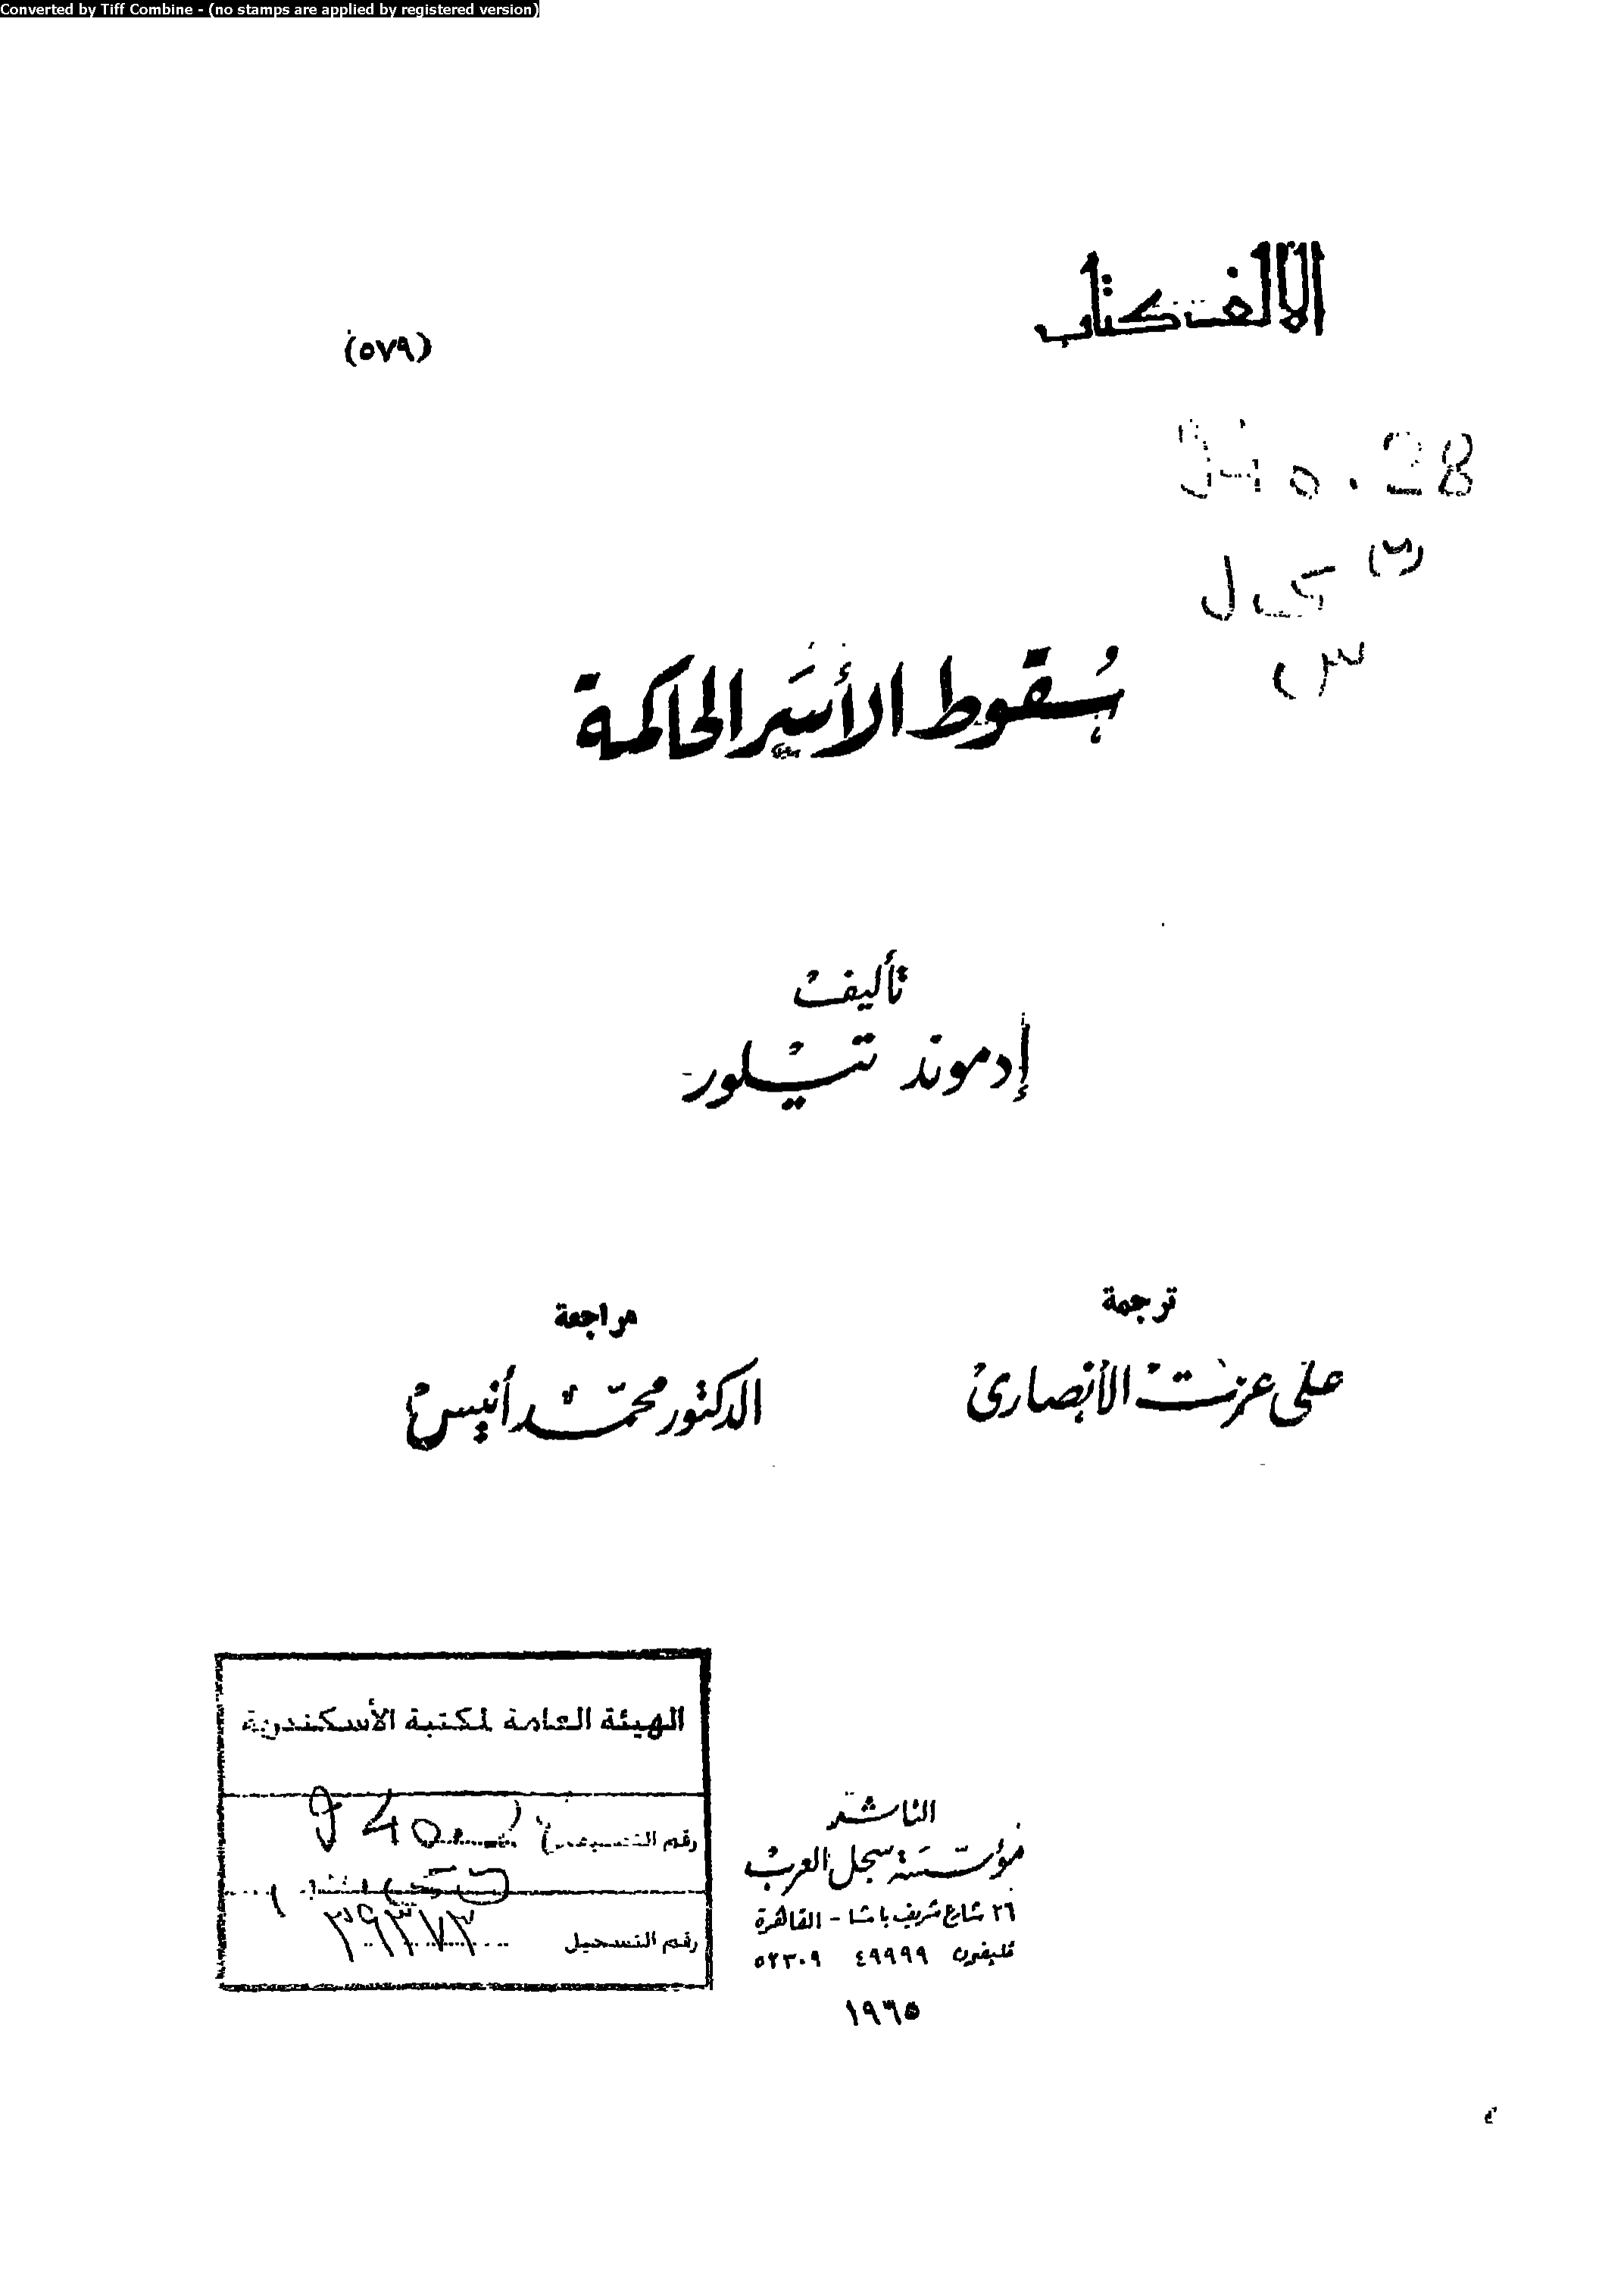 Converted by Tiff Combine - (no stamps are applied by registered version)
الألف كتاب
(٥٧٩)
سُقوط الأسَر الحاكمة
تأليف
إدموند تيلور
ترجمة
على عزت الأنصارى
مراجعة
الدكتور محمّد أنيس
الهيئة العامة لمكتبة الأسكندرية
رقم التصنيف
رقم التسجيل ٣٩٣٧٣
الناشر
مؤسسة سجل العرب
٢٦ شارع شريف باشا - القاهرة
تليفون ٤٩٩٩٩ ٥٢٣٠٩
١٩٦٥